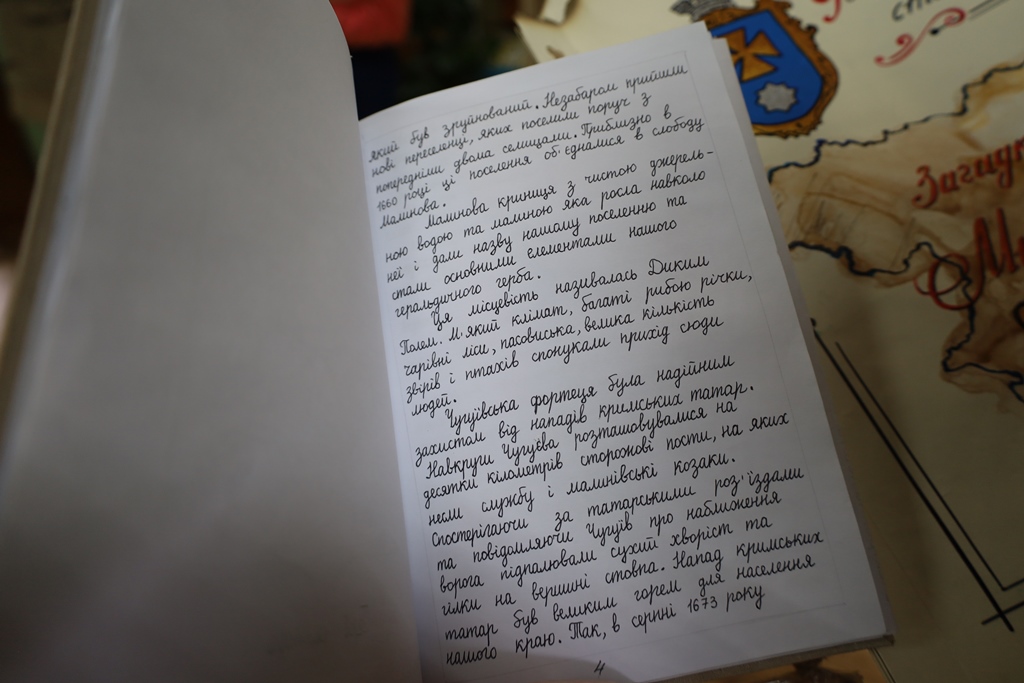 який був зруйнований. Незабаром прийшли
нові переселенці, яких поселили поруч з
попередніми двома селищами. Приблизно в
1660 році ці поселення об'єдналися в слободу
Малинова.
Малинова криниця з чистою джерель-
ною водою та малиною яка росла навколо
неї і дали назву нашому поселенню та
стали основними елементами нашого
геральдичного герба.
Ця місцевість називалась Диким
Полем. М'який клімат, багаті рибою річки,
чарівні ліси, пасовиська, велика кількість
звірів і птахів спонукали прихід сюди
людей.
Чугуївська фортеця була надійним
захистом від нападів кримських татар.
Навкруги Чугуєва розташовувалися на
десятки кілометрів сторожові пости, на яких
несли службу і малинівські козаки.
Спостерігаючи за татарськими роз'їздами
та повідомляючи Чугуїв про наближення
ворога підпалювали сухий хворіст та
гілки на вершині стовпа. Напад кримських
татар був великим горем для населення
нашого краю. Так, в серпні 1673 року
4